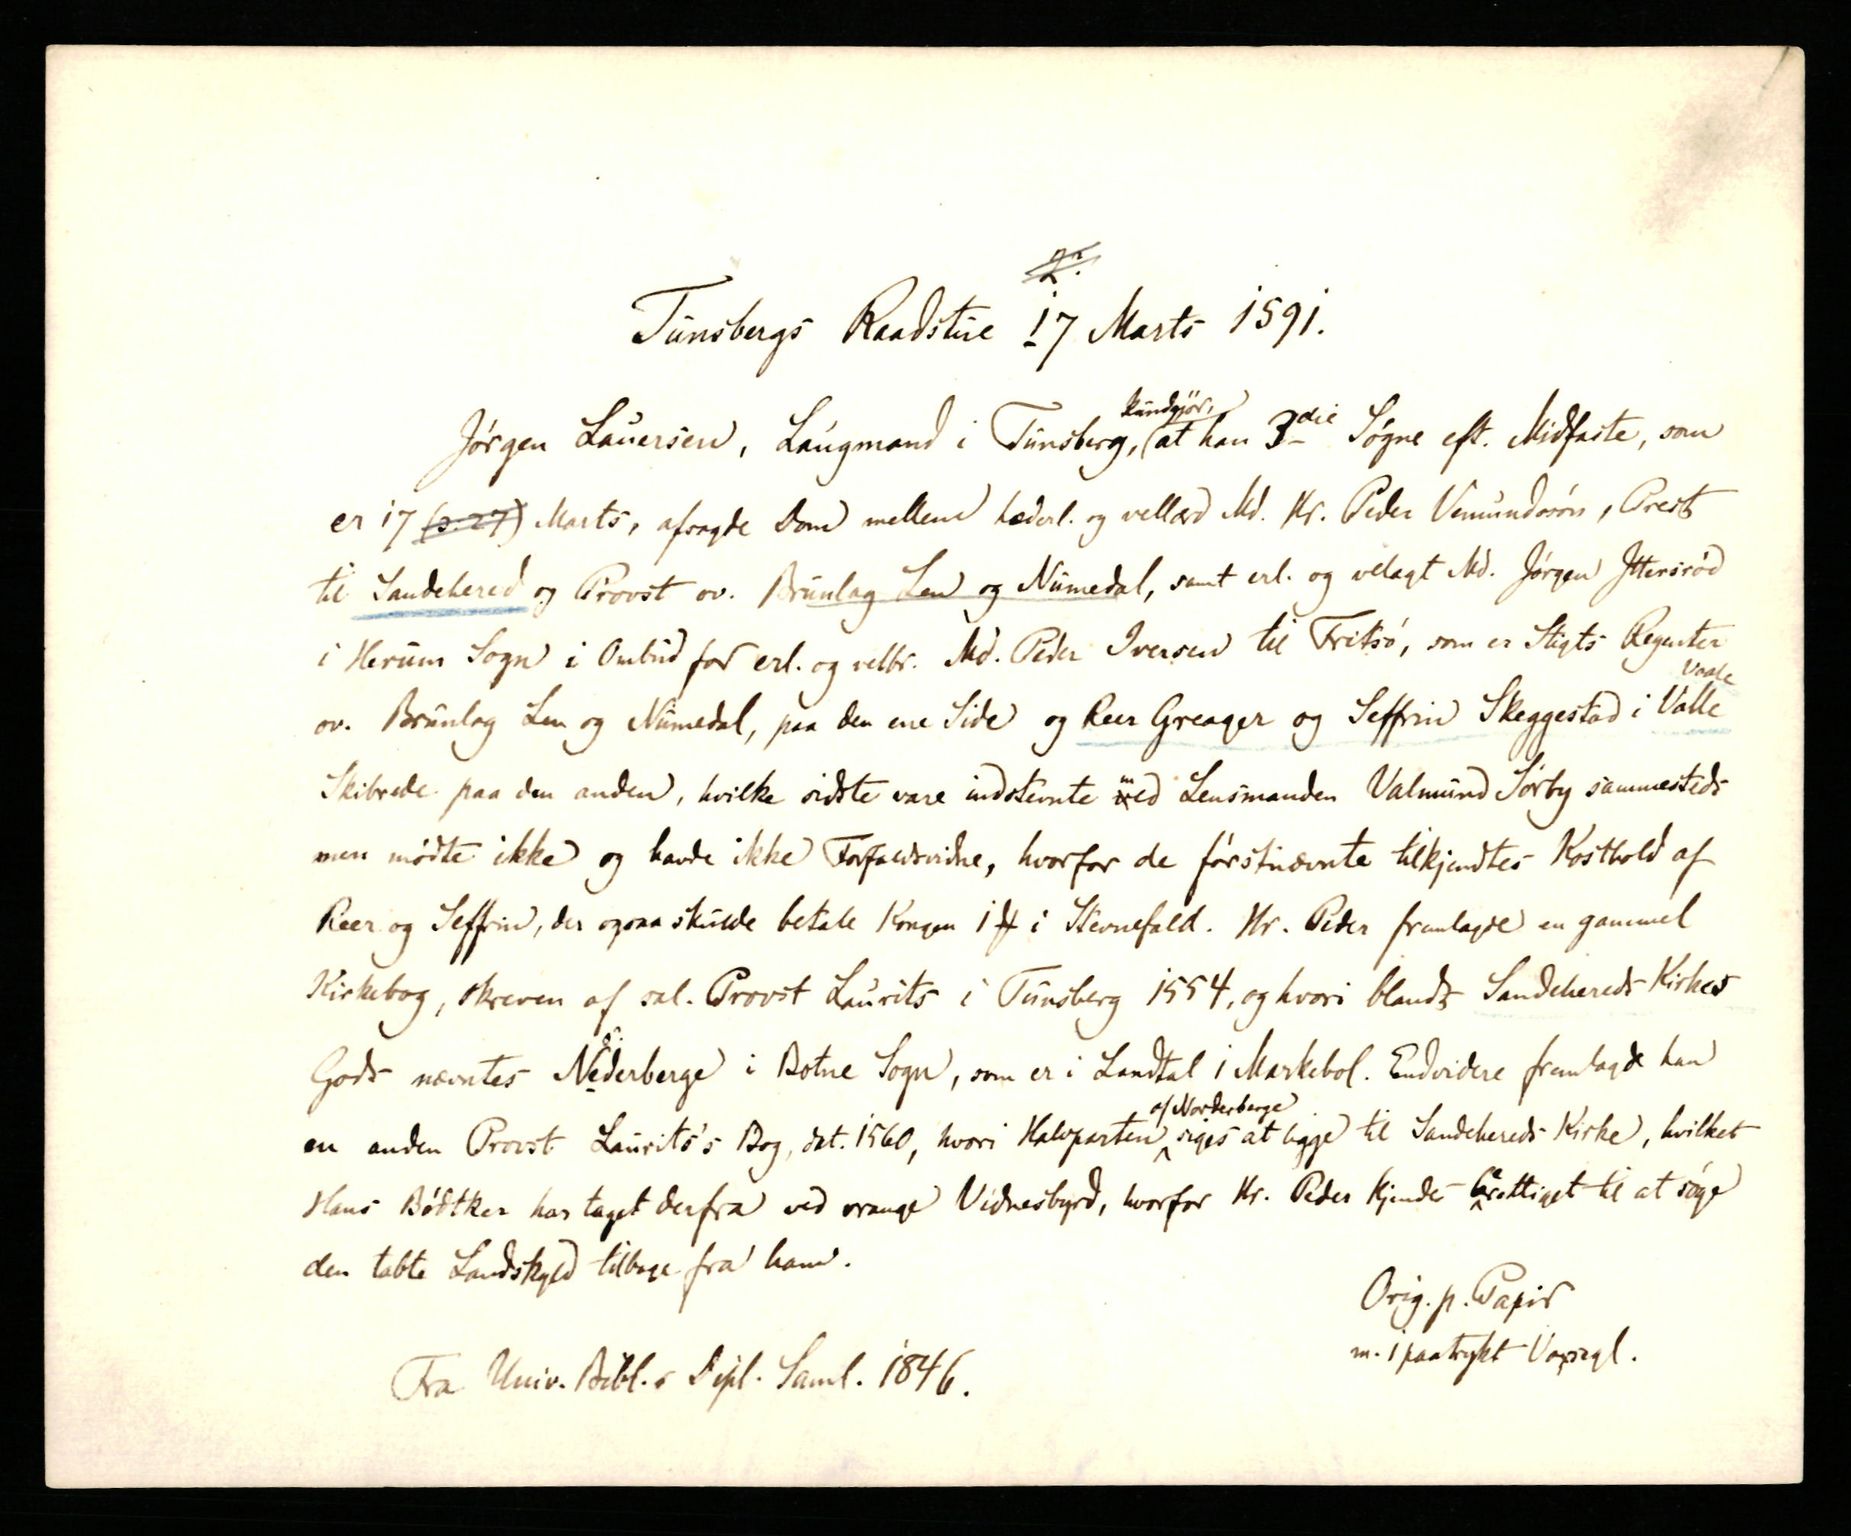 Tunsbergs Raadstue 17 Marts 1591.
Jörgen Lauersen, Laugmand i Tunsberg, kundgjör, at han 3die Sögne eft. Midfaste, som
er 17 (o: 27) Marts, afsagde Dom mellem hæderl. og vellærd Md. Hr. Peder Vemundssön, Prest
til Sandehered og Provst ov. Brunlag Len og Numedal, samt erl. og velagt Md. Jörgen Jttersröd
i Herum Sogn i Ombud for erl. og velbr. Md. Peder Iversen til Fritsö, som er Stigts Regenter
ov. Brunlag Len og Numedal, paa den ene Side og Reer Greager og Seffrin Skeggestad i Valle Vaale
Skibrede paa den anden, hvilke sidste vare indstevnte med Lensmanden Valmund Sörby sammesteds
men mödte ikke og havde ikke Forfaldsvidne, hvorfor de förstnævnte tilkjendtes Kosthold af
Reer og Seffrin, der ogsaa skulde betale Kongen 1 i Stevnefald. Hr. Peder fremlagde en gammel
Kirkebog, skreven af sal. Provst Laurits i Tunsberg 1554, og hvori blandt Sandehereds Kirkes
Gods nævntes Nederberge i Botne Sogn, som er i Landtal 1 Markebol. Endvidere fremlagde han
en anden Provst Laurits's Bog, dat. 1560, hvori Halvparten af Norderberge siges at ligge til Sandehereds Kirke, hvilket
Hans Bödtker har taget derfra ved vrange Vidnesbyrd, hvorfor Hr. Peder kjendes berettiget til at söge
den tabte Landskyld tilbage fra ham.
Orig. p. Papir
m. 1 paatrykt Voxsegl.
Fra Univ. Bibl.s Dipl. Saml. 1846.